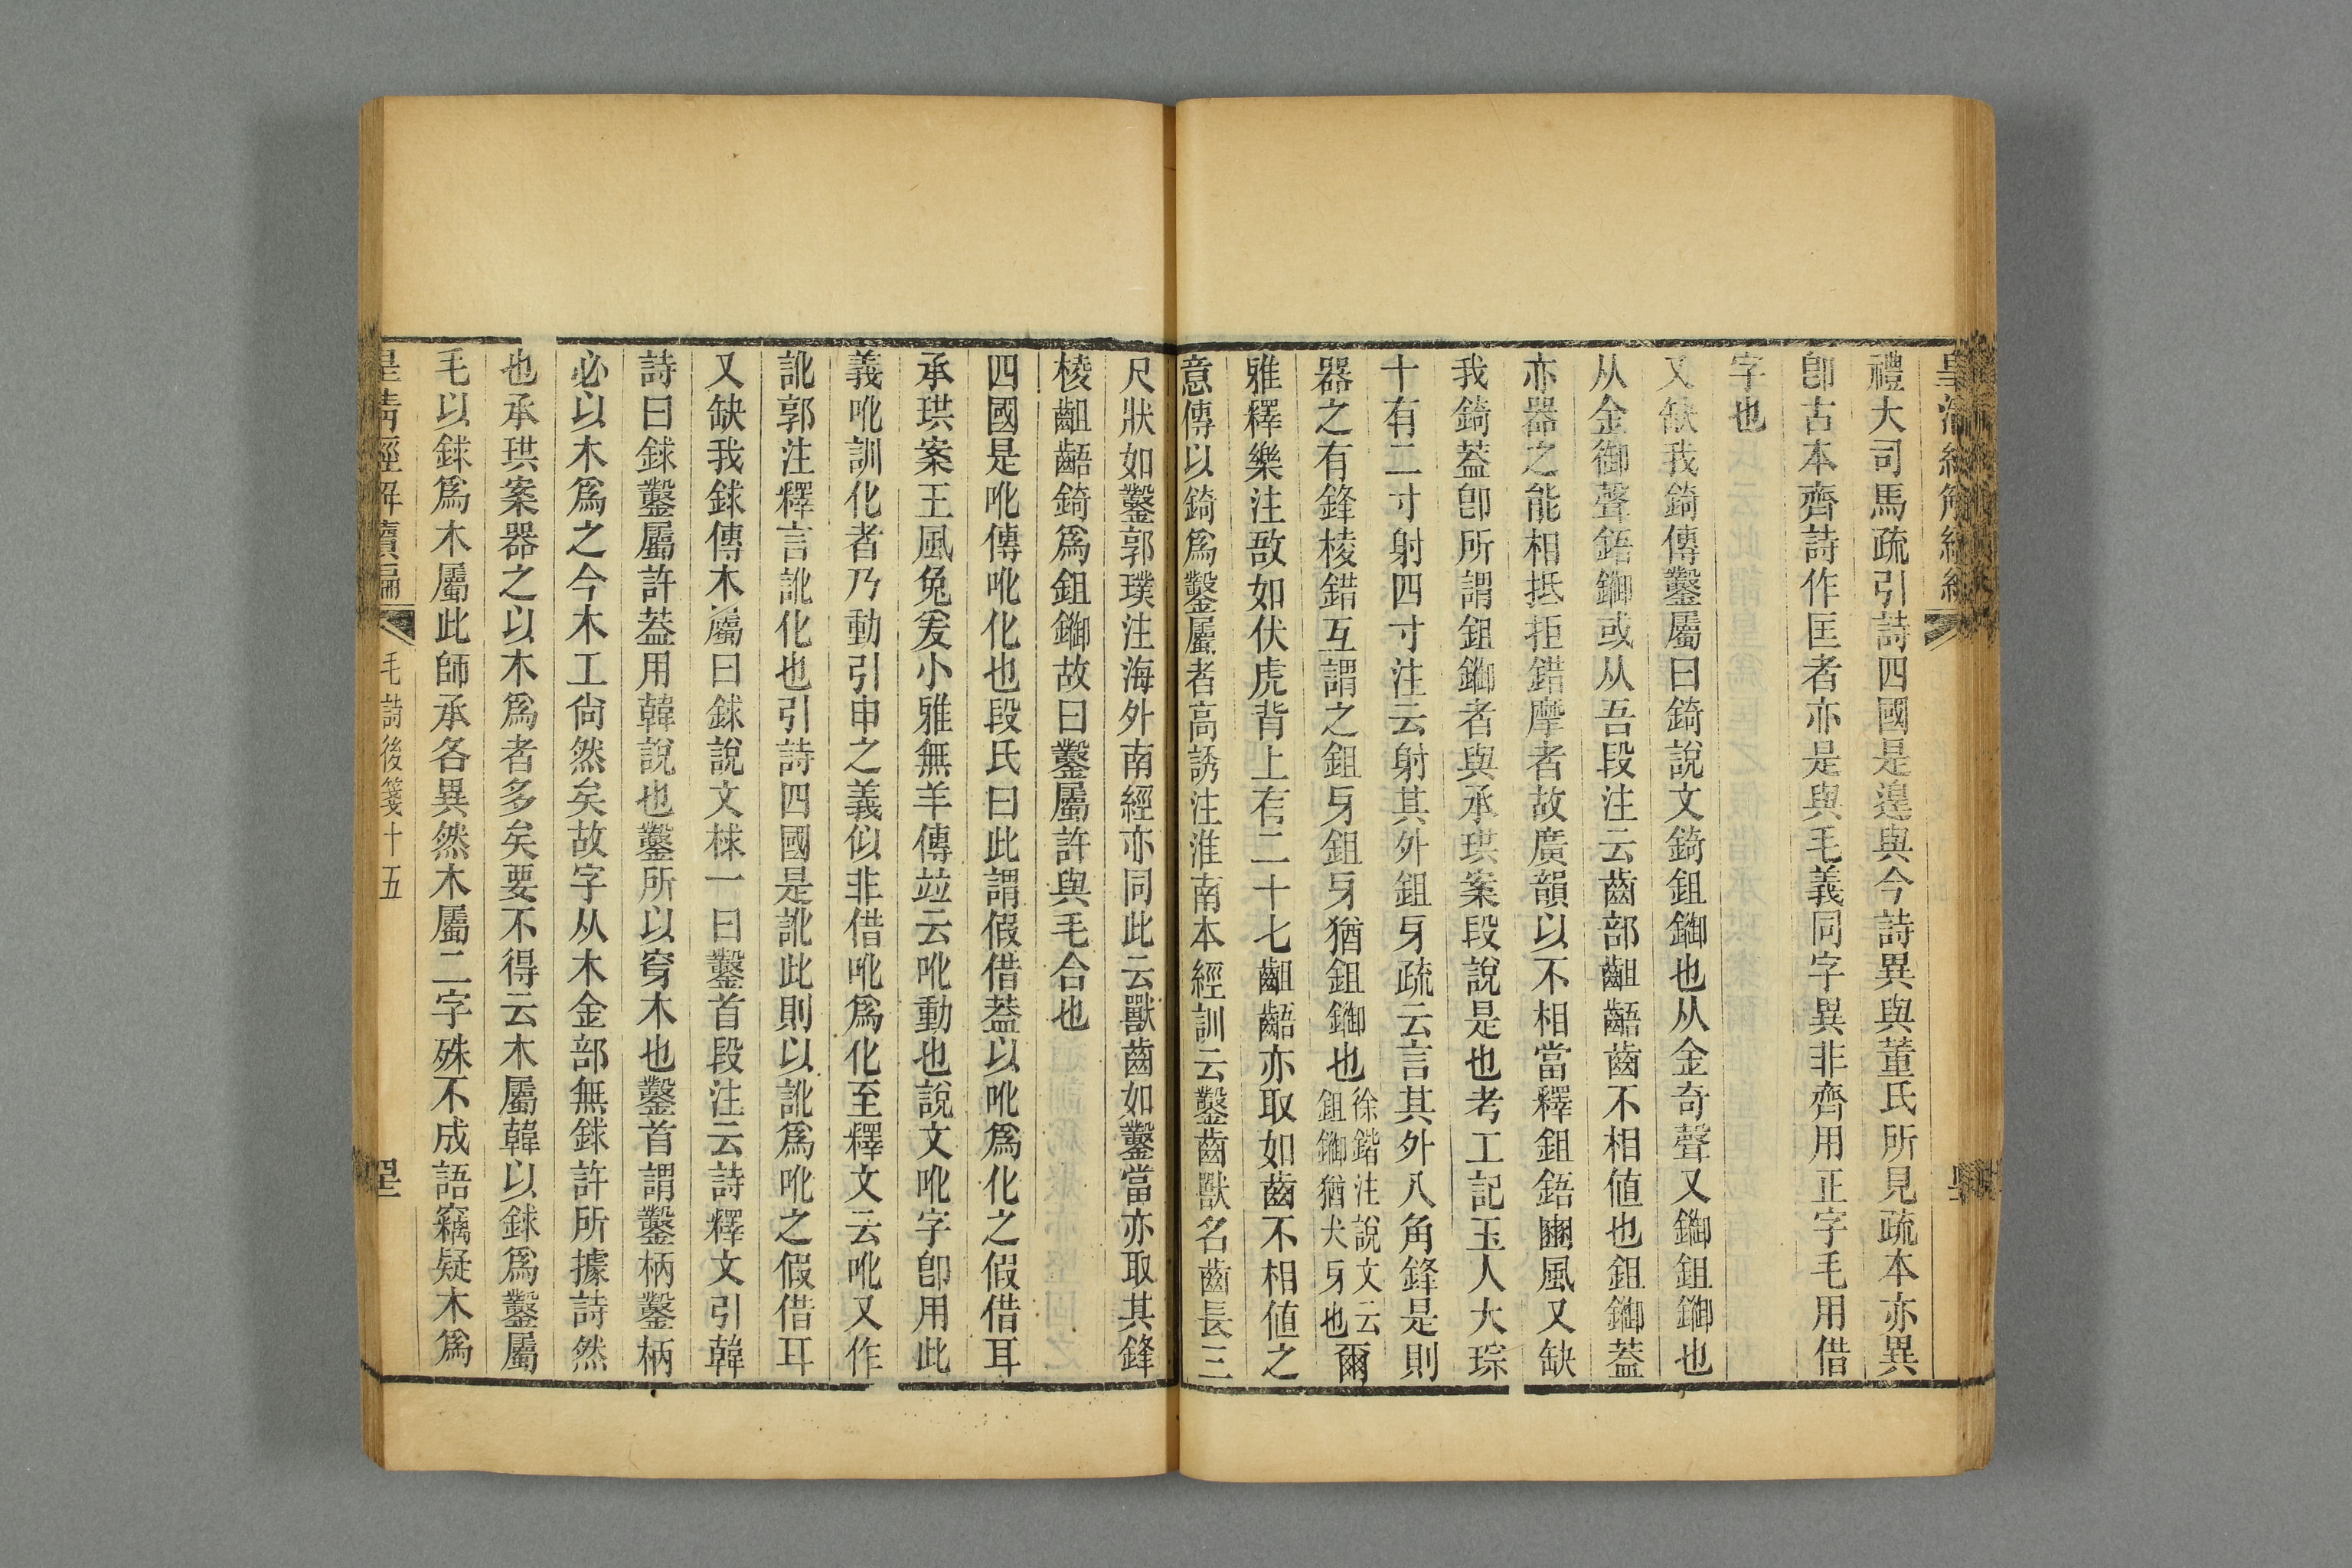 禮大司馬疏引詩四國是遑與今詩異與董氏所見疏本亦異
卽古本齊詩作匡者亦是與毛義同字異非齊用正字毛用借
字也
又缺我錡傳鑿屬曰錡說文錡鉏鋤也从金奇聲又鋤鉏鋤也
从金御聲鋙鋤或从吾段注云齒部齟齬齒不相値也鉏鋤蓋
亦器之能相抵拒錯摩者故廣韻以不相當釋鉏鋙豳風又缺
我錡蓋卽所謂鉏鋤者與承珙案段說是也考工記玉人大琮
十有二寸射四寸注云射其外鉏牙疏云言其外八角鋒是則
器之有鋒棱錯互謂之鉏牙鉏牙猶鉏鋤也徐鍇注說文云鉏鋤猶犬牙也爾
雅釋樂注敔如伏虎背上有二十七齟齬亦取如齒不相値之
意傳以錡爲鑿屬者高誘注淮南本經訓云鑿齒獸名齒長三
尺狀如鑿郭璞注海外南經亦同此云獸齒如鑿當亦取其鋒
棱齟齬錡爲鉏鋤故曰鑿屬許與毛合也
四國是吪傳吪化也段氏曰此謂假借蓋以吪爲化之假借耳
承珙案王風兔爰小雅無羊傳竝云吪動也說文吪字卽用此
義吪訓化者乃動引申之義似非借吪爲化至釋文云吪又作
訛郭注釋言訛化也引詩四國是訛此則以訛爲吪之假借耳
又缺我銶傳木屬曰銶說文梂一曰鑿首段注云詩釋文引韓
詩曰銶鑿屬許蓋用韓說也鑿所以穿木也鑿首謂鑿柄鑿柄
必以木爲之今木工尙然矣故字从木金部無銶許所據詩然
也承珙案器之以木爲者多矣要不得云木屬韓以銶爲鑿屬
毛以銶爲木屬此師承各異然木屬二字殊不成語竊疑木爲
皇淸經解續編 毛詩後箋十五